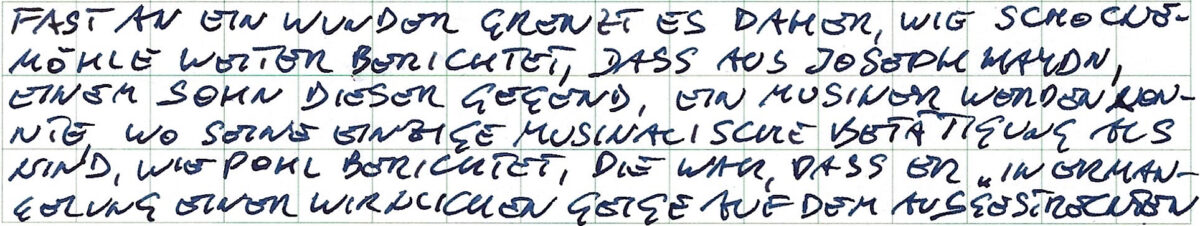 FAST AN EIN WUNDER GRENZT ES DAHER, WIE SCHOCKE-
MÖHLE WEITER BERICHTET, DASS AUS JOSEPH HAYDN,
EINEM SOHN DIESER GEGEND, EIN MUSIKER WERDEN KON-
NTE, WO SEINE EINZIGE MUSIKALISCHE BETÄTIGUNG ALS
KIND, WIE POHL BERICHTET, DIE WAR, DASS ER „IN ERMAN-
GELUNG EINER WIRKLICHEN GEIGE AUF DEM AUSGESTRECKTEN